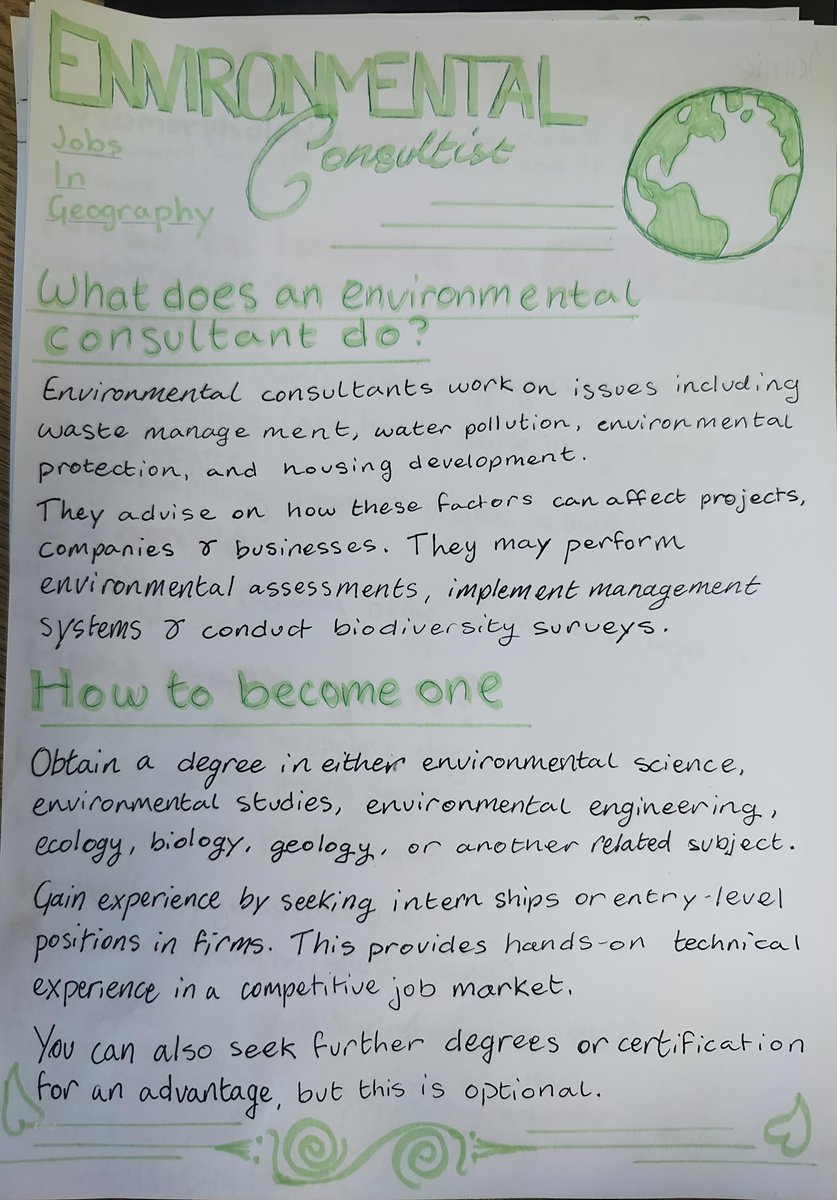 ENVIRONMENTAL
Consultist
Jobs
In
Geography
What does an environmental
consultant do?
Environmental consultants work on issues including
waste management, water pollution, environmental
protection, and housing development.
They advise on how these factors can affect projects,
companies & businesses. They may perform
environmental assessments, implement management
systems & conduct biodiversity surveys.
How to become one
Obtain a degree in either environmental science,
environmental studies, environmental engineering,
ecology, biology, geology, or another related subject.
Gain experience by seeking internships or entry-level
positions in firms. This provides hands-on technical
experience in a competitive job market.
You can also seek further degrees or certification
for an advantage, but this is optional.